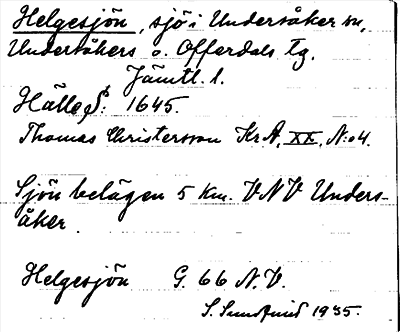 Helgesjön, sjö i Undersåker sn,
Undersåkers o. Offerdals tg.
Jämtl. l.
1645.
Thomas Christersson Kr. A, XX, N:o 4.
Sjön belägen 5 km. VNV Unders-
åker.
Helgesjön G. 66 N.V.
S. Sundqvist 1935.